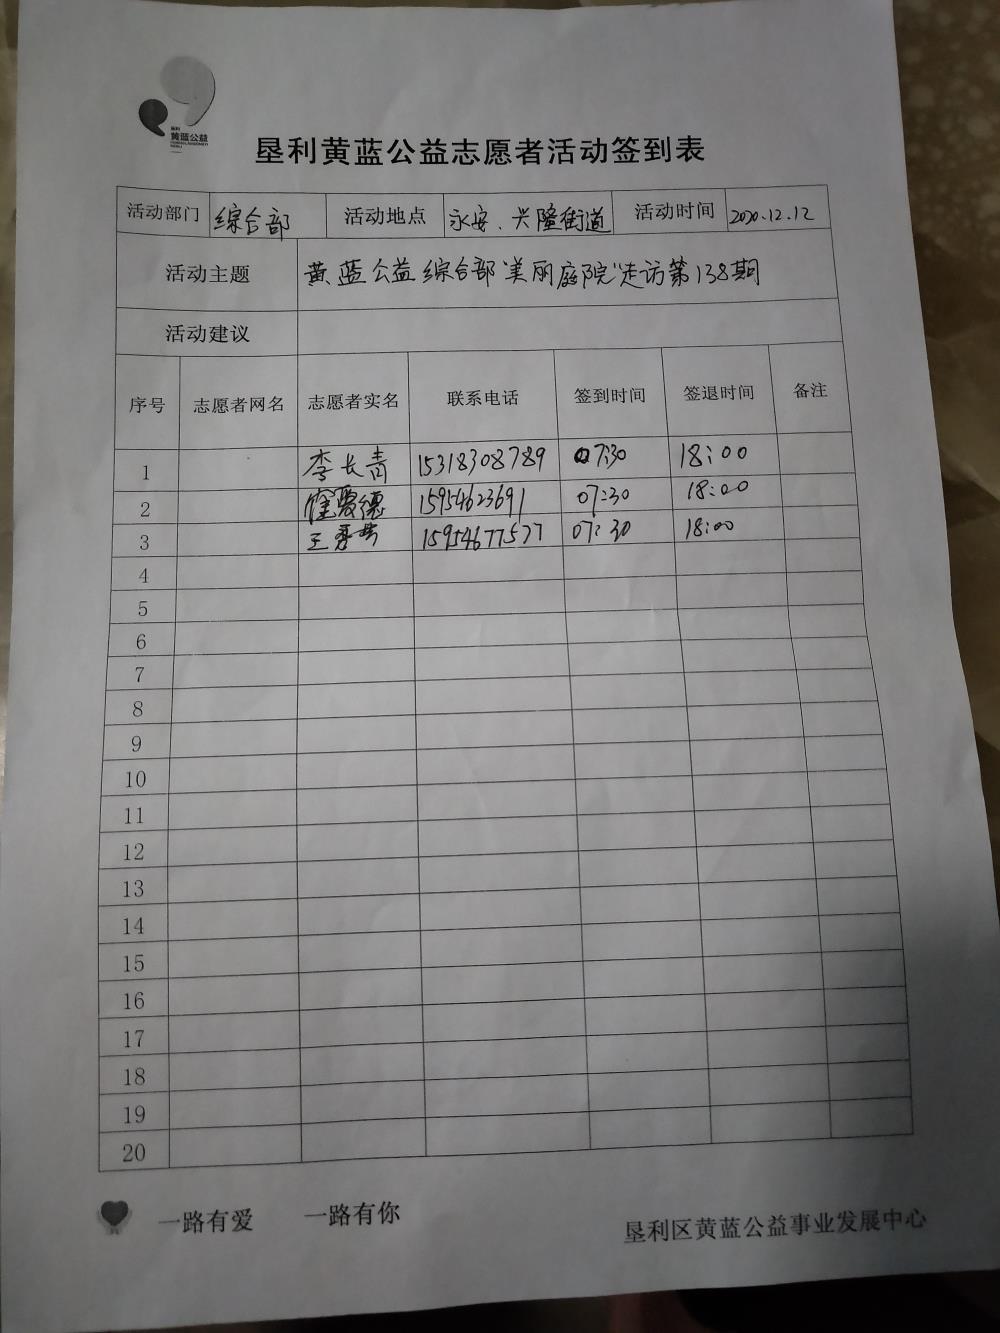 垦利
黄蓝公益
垦利黄蓝公益志愿者活动签到表
活动部门 综合部 活动地点 永安、兴隆街道 活动时间 2020.12.12
活动主题 黄蓝公益综合部“美丽庭院”走访第138期
活动建议
序号 志愿者网名 志愿者实名 联系电话 签到时间 签退时间 备注
1 李长青 15318308789 07:30 18:00
2 德 15954623691 07:30 18:00
3 王 15954677577 07:30 18:00
4
5
6
7
8
9
10
11
12
13
14
15
16
17
18
19
20
一路有爱 一路有你
垦利区黄蓝公益事业发展中心